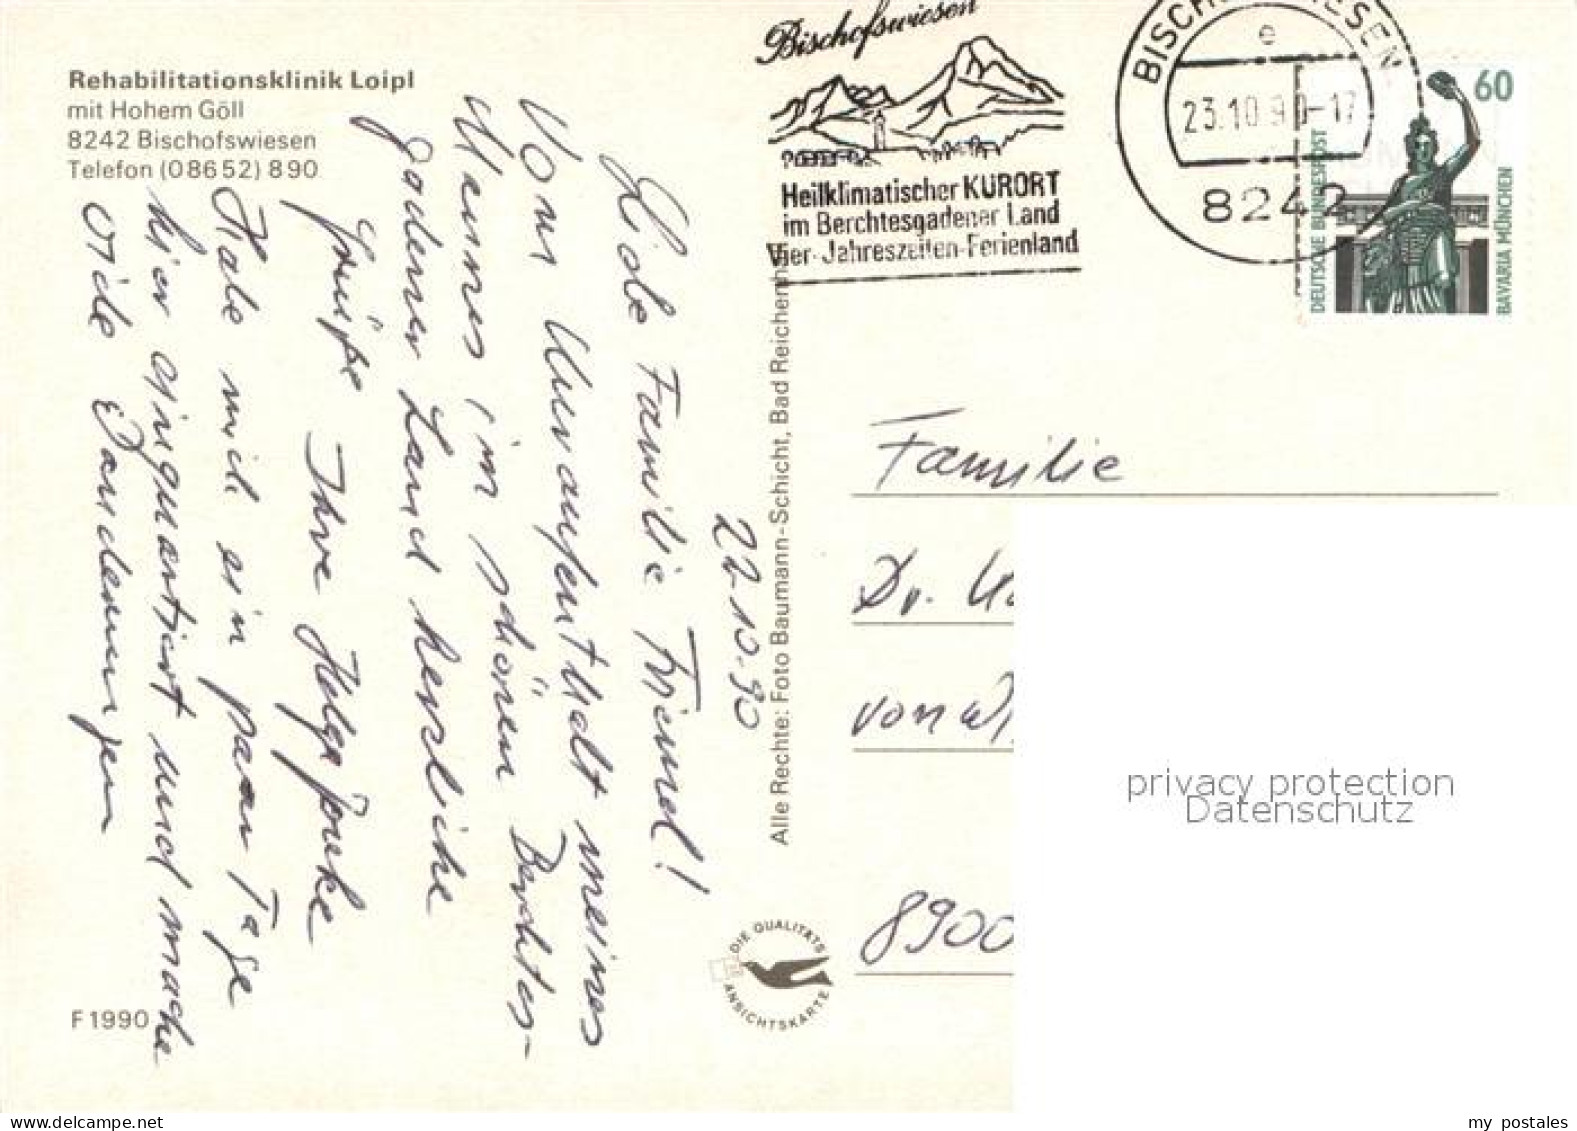 Rehabilitationsklinik Loipl
mit Hohem Göll
8242 Bischofswiesen
Telefon (08652) 890
22.10.90
Liebe Familie
Vom Kuraufenthalt meines
Mannes im schönen Berchtes-
gadener Land herzliche
Grüße Ihre Helga
Habe mich ein paar Tage
hier einquartiert und mache
viele Wanderungen
F 1990
Alle Rechte: Foto Baumann-Schicht, Bad Reichenh
DIE QUALITÄTS
ANSICHTSKARTE
Bischofswiesen
Heilklimatischer KURORT
im Berchtesgadener Land
Vier-Jahreszeiten-Ferienland
BISCHOFSWIESEN
e
23.10.90-17
8242
60
DEUTSCHE BUNDESPOST
BAVARIA MÜNCHEN
Familie
Dr.
von
8900
privacy protection
Datenschutz
my postales